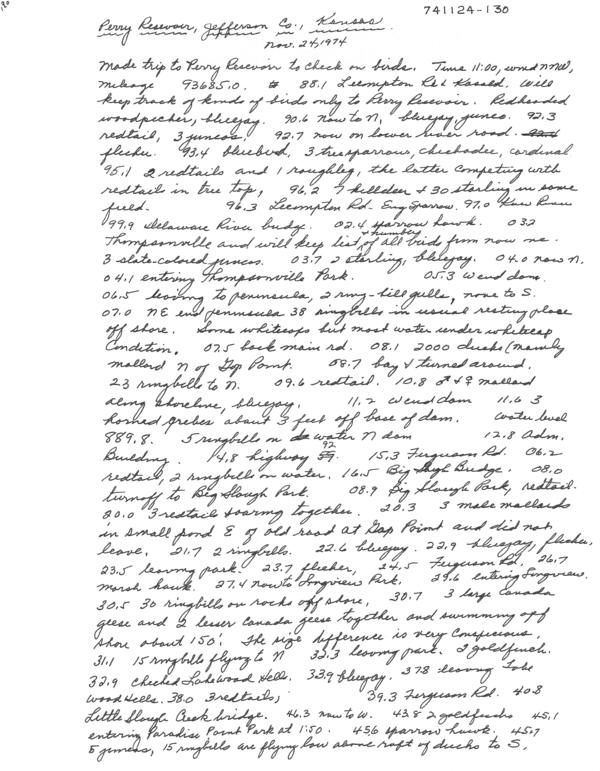 741124-130
Perry Resevoir, Jefferson Co., Kansas
Nov. 24, 1974
Made trip to Perry Resevoir to check on birds. Time 11:00, wind NNW,
mileage 93685.0. 88.1 Lecompton Rd & Kasold. Will
keep track of kinds of birds only to Perry Resevoir. Redheaded
woodpecker, bluejay. 90.6 now to N, bluejay, junco. 92.3
redtail, 3 juncos, 92.7 now on lower river road.
flicker. 93.4 bluebird, 3 treesparrows, chickadee, cardinal
95.1 2 redtails and 1 roughleg, the latter competing with
redtail in tree top, 96.2 7 killdeer + 30 starling in same
field. 96.3 Lecompton Rd. Eng Sparrow. 97.0 Kaw River
99.9 Delaware River bridge. 02.4 sparrow hawk. 03.2
Thompsonville and will keep list + numbers of all birds from now on.
3 slate-colored juncos. 03.7 2 starling, bluejay. 04.0 now N.
04.1 entering Thompsonville Park. 05.3 W end dam.
06.5 leaving to peninsula, 2 ring-bill gulls, none to S.
07.0 NE end peninsula 38 ringbills in usual resting place
off shore. Some whitecaps but most water under whitecap
condition. 07.5 back main rd. 08.1 2000 ducks (mainly
mallard N of Gap Point. 08.7 bay & turned around.
23 ringbills to N. 09.6 redtail. 10.8 ♂ + ♀ mallard
along shoreline, bluejay. 11.2 W end dam 11.6 3
horned grebes about 3 feet off base of dam. Water level
889.8. 5 ringbills on water N dam 12.8 Adm.
Building. 14.8 highway 92. 15.3 Ferguson Rd. 06.2
redtail, 2 ringbills on water. 16.5 Big Slough Bridge. 08.0
turnoff to Big Slough Park. 08.9 Big Slough Park, redtail.
20.0 3 redtail soaring together. 20.3 3 male mallards
in small pond E of old road at Gap Point and did not
leave. 21.7 2 ringbills. 22.6 bluejay. 22.9 bluejay, flicker,
23.5 leaving park. 23.7 flicker, 24.5 Ferguson Rd. 26.7
marsh hawk. 27.4 now to Longview Park. 29.6 entering Longview.
30.5 30 ringbills on rocks off shore, 30.7 3 large Canada
geese and 2 lesser Canada geese together and swimming off
shore about 150'. The size difference is very conspicuous.
31.1 15 ringbills flying to N 32.3 leaving park. 2 goldfinch.
32.9 checked Lakewood Hills. 33.9 bluejay. 37.8 leaving Lake
wood Hills. 38.0 3 redtails, 39.3 Ferguson Rd. 40.8
Little Slough Creek bridge. 46.3 now to W. 43.8 2 goldfinchs 45.1
entering Paradise Point Park at 1:50. 45.6 sparrow hawk. 45.7
5 juncos, 15 ringbills are flying low above raft of ducks to S.